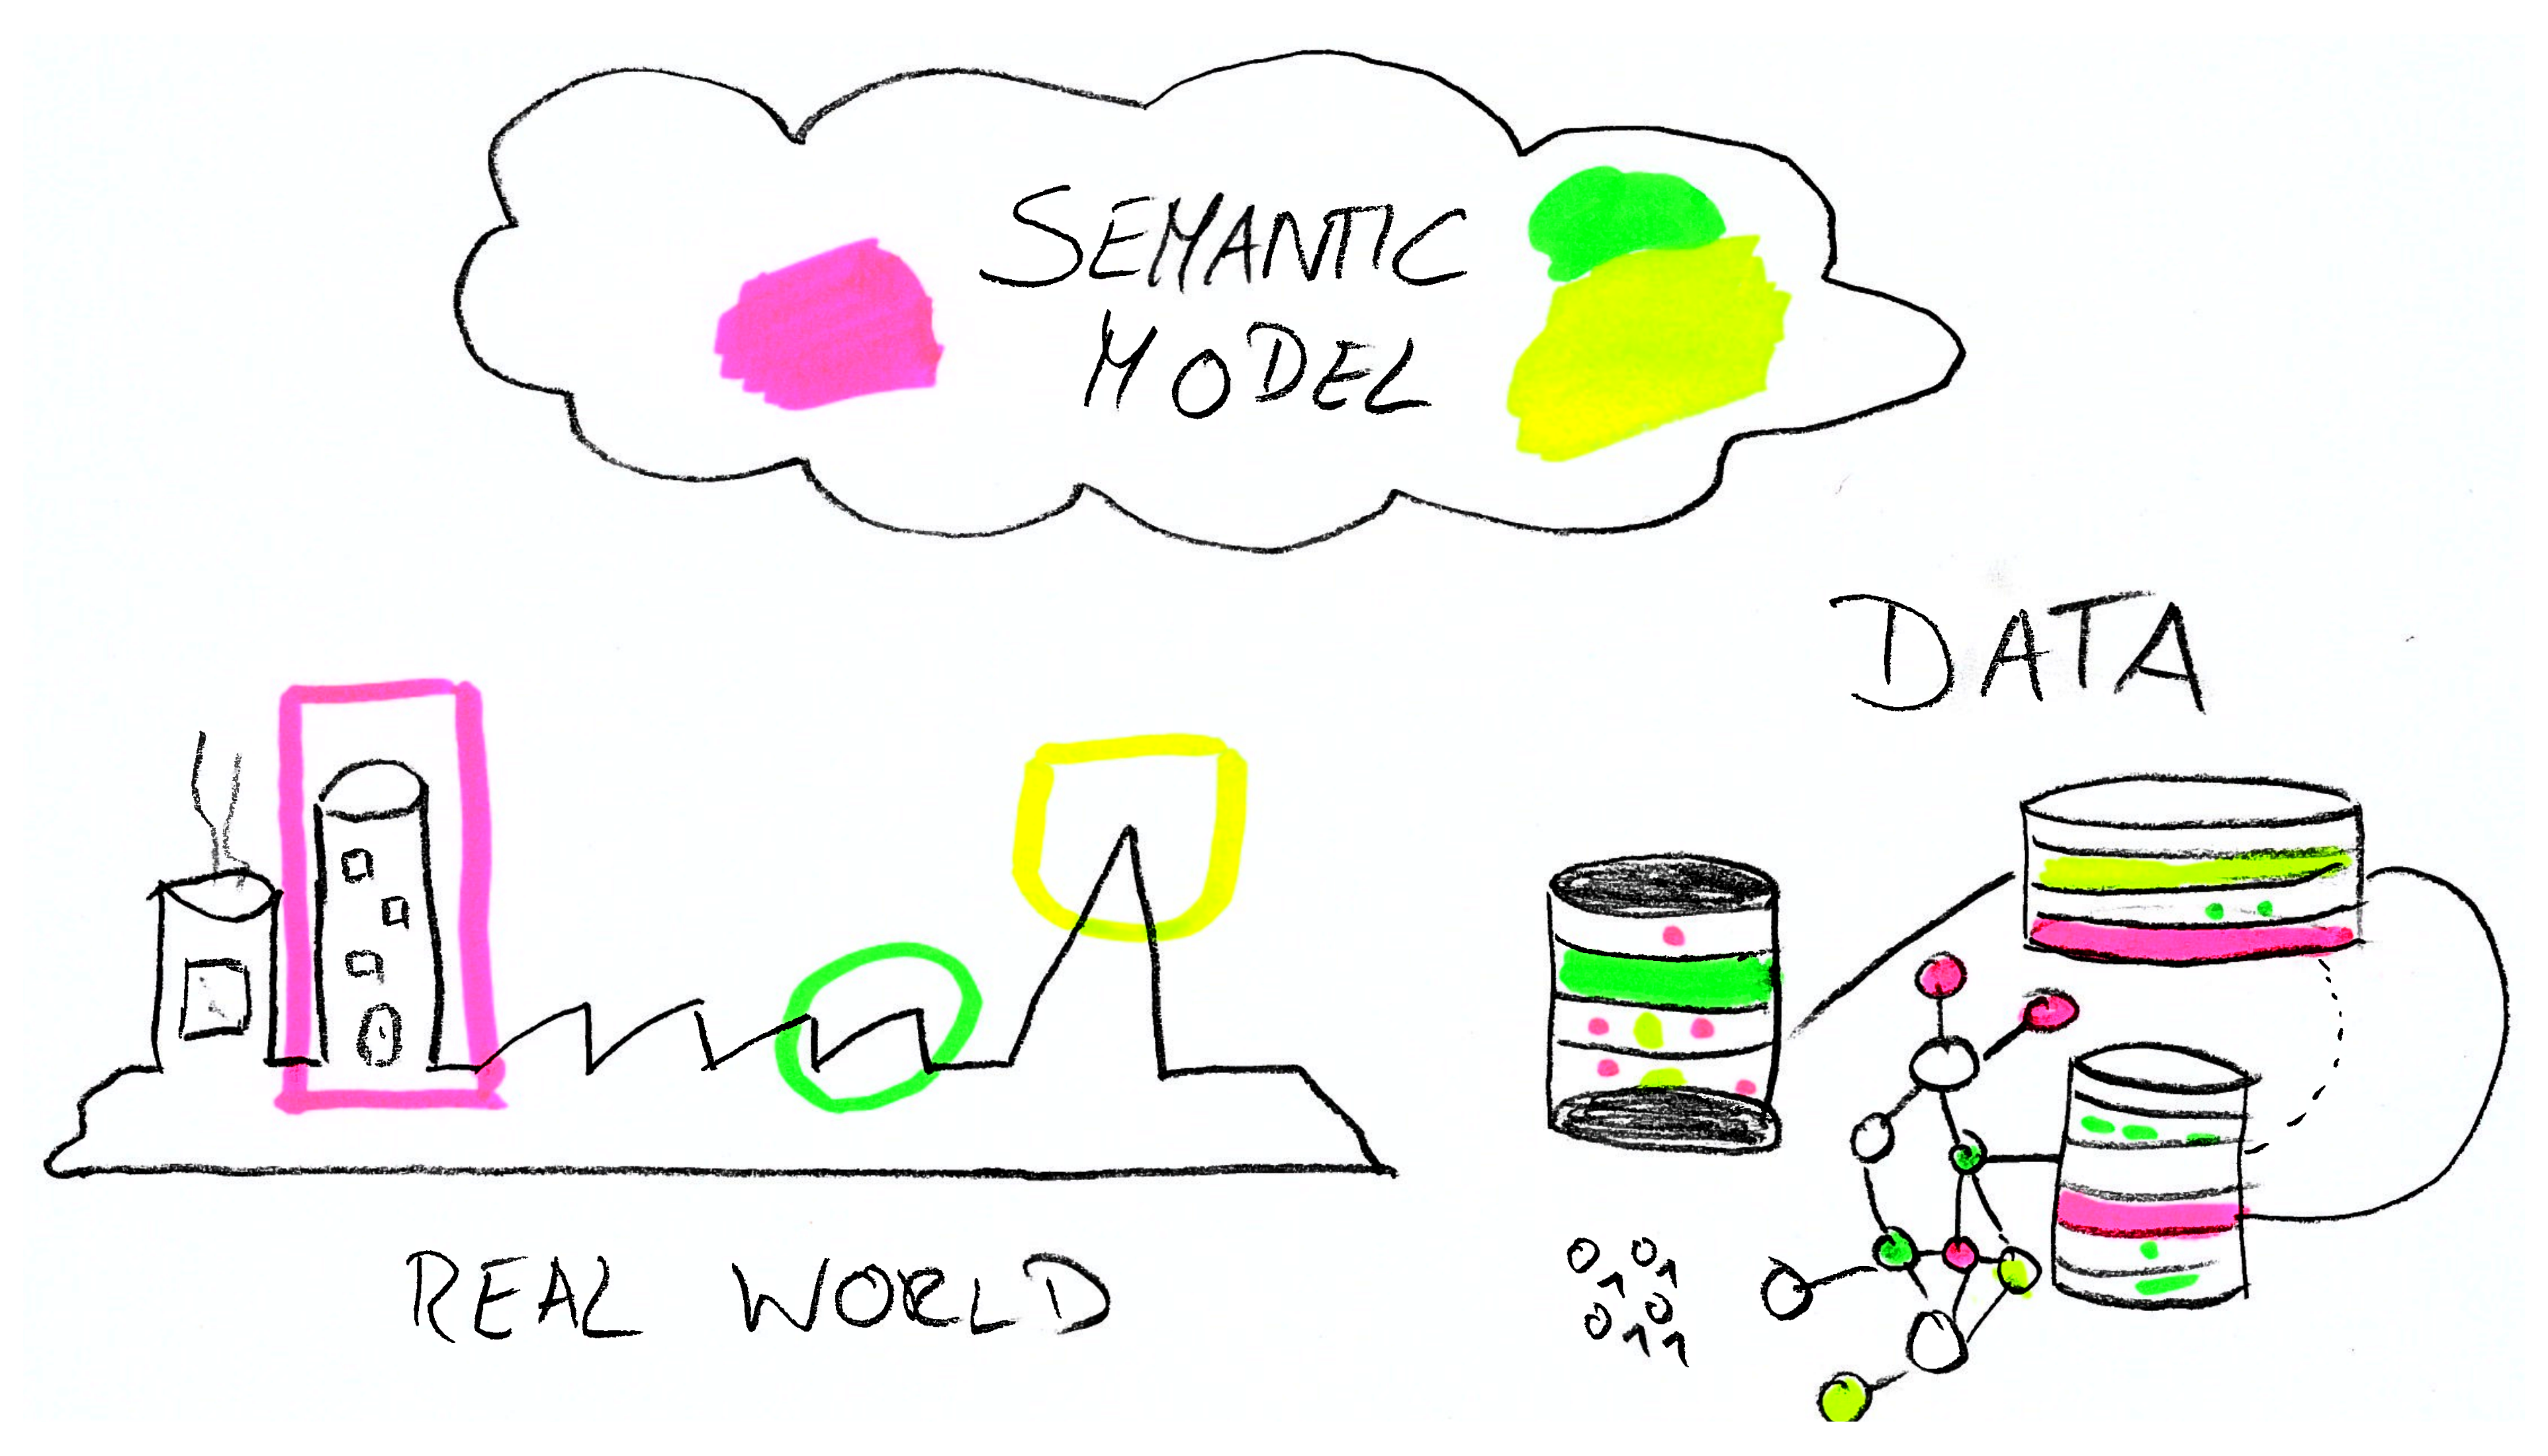 SEMANTIC
MODEL
DATA
REAL WORLD
0 1 0 1
0 1 0 1 1